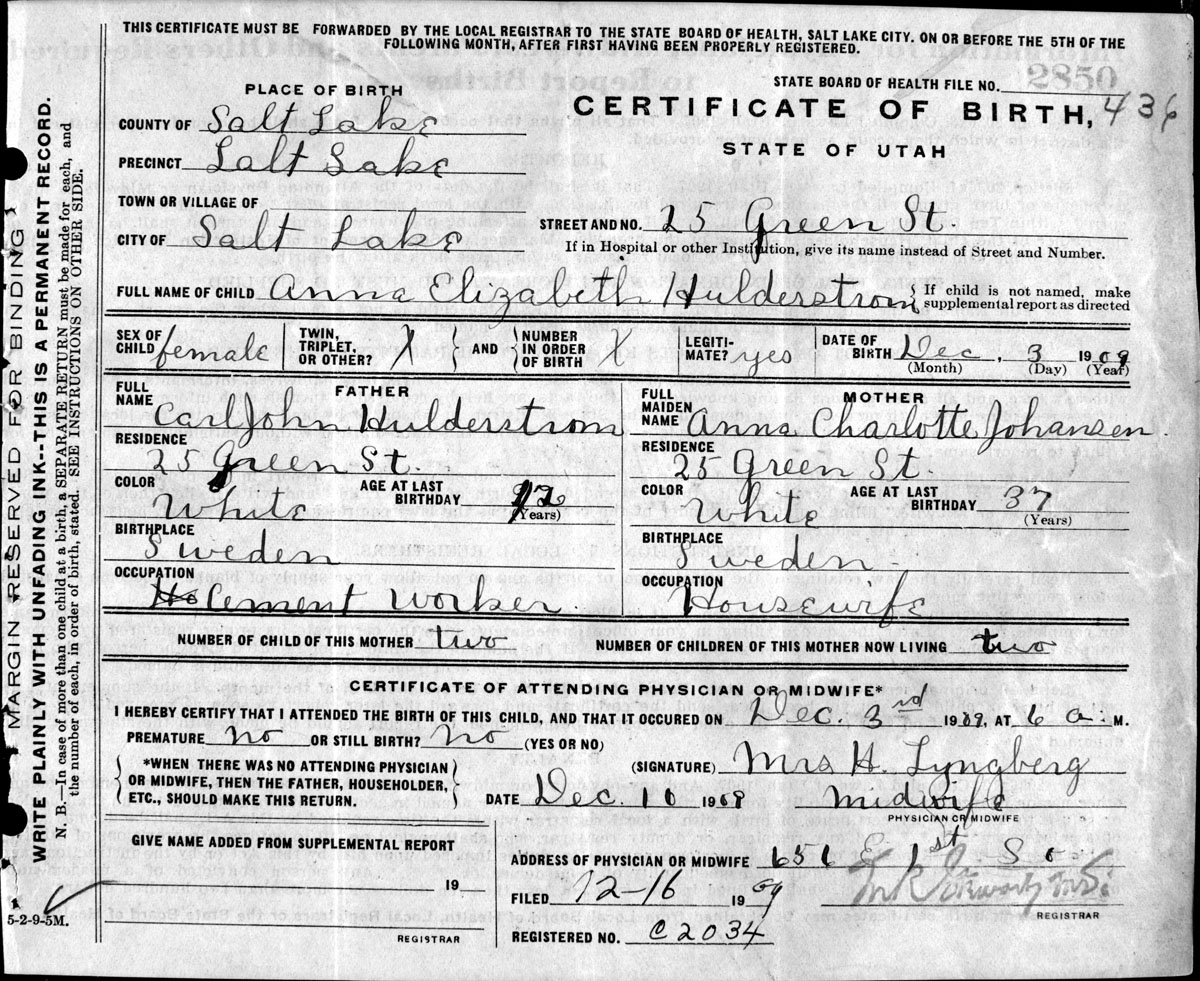 THIS CERTIFICATE MUST BE FORWARDED BY THE LOCAL REGISTRAR TO THE STATE BOARD OF HEALTH, SALT LAKE CITY, ON OR BEFORE THE 5TH OF THE
FOLLOWING MONTH, AFTER FIRST HAVING BEEN PROPERLY REGISTERED.
2850
STATE BOARD OF HEALTH FILE NO.
PLACE OF BIRTH
CERTIFICATE OF BIRTH, 436
STATE OF UTAH
COUNTY OF Salt Lake
PRECINCT Salt Lake
TOWN OR VILLAGE OF
STREET AND NO. 25 Green St.
CITY OF Salt Lake
If in Hospital or other Institution, give its name instead of Street and Number.
FULL NAME OF CHILD Anna Elizabeth Hulderstrom { If child is not named, make
supplemental report as directed
SEX OF CHILD female
TWIN, TRIPLET, OR OTHER? X } AND { NUMBER IN ORDER OF BIRTH X
LEGITI-MATE? yes
DATE OF BIRTH Dec, 3 1909
(Month) (Day) (Year)
FATHER
FULL NAME Carl John Hulderstrom
RESIDENCE
25 Green St.
COLOR White AGE AT LAST BIRTHDAY
(Years)
BIRTHPLACE
Sweden
OCCUPATION
Cement Worker
MOTHER
FULL MAIDEN NAME Anna Charlotte Johansen
RESIDENCE
25 Green St.
COLOR White AGE AT LAST BIRTHDAY 37
(Years)
BIRTHPLACE
Sweden
OCCUPATION
Housewife
NUMBER OF CHILD OF THIS MOTHER two NUMBER OF CHILDREN OF THIS MOTHER NOW LIVING two
CERTIFICATE OF ATTENDING PHYSICIAN OR MIDWIFE*
I HEREBY CERTIFY THAT I ATTENDED THE BIRTH OF THIS CHILD, AND THAT IT OCCURED ON Dec. 3rd 1909, AT 6 a. M.
PREMATURE no OR STILL BIRTH? no (YES OR NO)
*WHEN THERE WAS NO ATTENDING PHYSICIAN
OR MIDWIFE, THEN THE FATHER, HOUSEHOLDER,
ETC., SHOULD MAKE THIS RETURN.
(SIGNATURE) Mrs H. Lyngberg
DATE Dec. 10 1909 Midwife
PHYSICIAN OR MIDWIFE
GIVE NAME ADDED FROM SUPPLEMENTAL REPORT
19
REGISTRAR
ADDRESS OF PHYSICIAN OR MIDWIFE 656 E 1st So
FILED 12-16 1909
REGISTRAR
REGISTERED NO. C2034
5-2-9-5M.
MARGIN RESERVED FOR BINDING
WRITE PLAINLY WITH UNFADING INK--THIS IS A PERMANENT RECORD.
N. B.—In case of more than one child at a birth, a SEPARATE RETURN must be made for each, and
the number of each, in order of birth, stated. SEE INSTRUCTIONS ON OTHER SIDE.